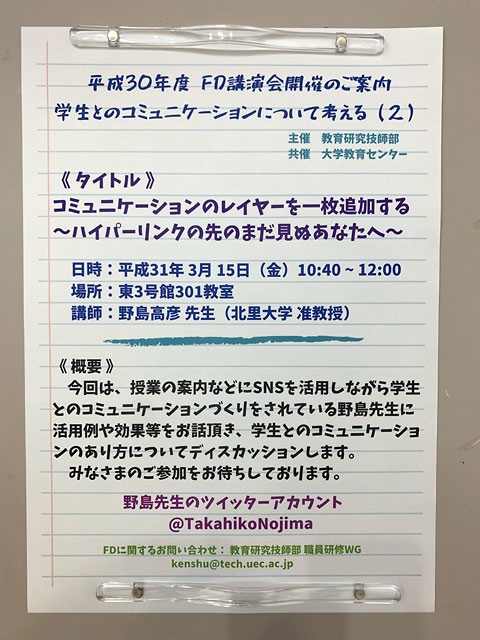 平成30年度 FD講演会開催のご案内
学生とのコミュニケーションについて考える（2）
主催　教育研究技師部
共催　大学教育センター
《 タイトル 》
コミュニケーションのレイヤーを一枚追加する
～ハイパーリンクの先のまだ見ぬあなたへ～
日時：平成31年 3月 15日（金）10:40 ~ 12:00
場所：東3号館301教室
講師：野島高彦 先生（北里大学 准教授）
《 概要 》
今回は、授業の案内などにSNSを活用しながら学生
とのコミュニケーションづくりをされている野島先生に
活用例や効果等をお話頂き、学生とのコミュニケーショ
ンのあり方についてディスカッションします。
みなさまのご参加をお待ちしております。
野島先生のツイッターアカウント
@TakahikoNojima
FDに関するお問い合わせ： 教育研究技師部 職員研修WG
kenshu@tech.uec.ac.jp